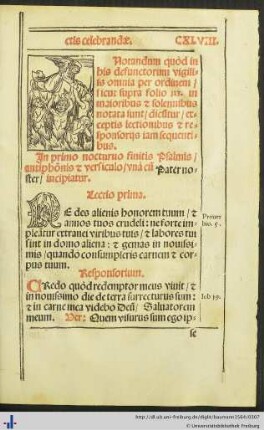 ctis celebrandæ. CXLVIII.
Notandum quòd in
his defunctorum vigili-
is omnia per ordinem/
sicut supra folio in
maioribus & solennibus
notata sunt/ dicẽtur/ ex-
ceptis lectionibus & re-
sponsorijs iam sequenti-
bus.
In primo nocturno finitis Psalmis/
antiphonis & versiculo/vnà cũ Pater no-
ster/ incipiatur.
Lectio prima.
NE des alienis honorem tuum/ &
annos tuos crudeli: ne forte im-
pleãtur extranei viribus tuis/ & labores tui
sint in domo aliena: & gemas in nouissi-
mis/quando consumpseris carnem & cor-
pus tuum.
Prouer
bio. 5.
Responsorium.
CRedo quòd redemptor meus viuit/ &
in nouissimo die de terra surrecturus sum:
& in carne mea videbo Deũ/ Saluatorem
meum. Ver: Quem visurus sum ego ip-
Iob 19.
se
http://dl.ub.uni-freiburg.de/diglit/
© Universitätsbibliothek Freiburg